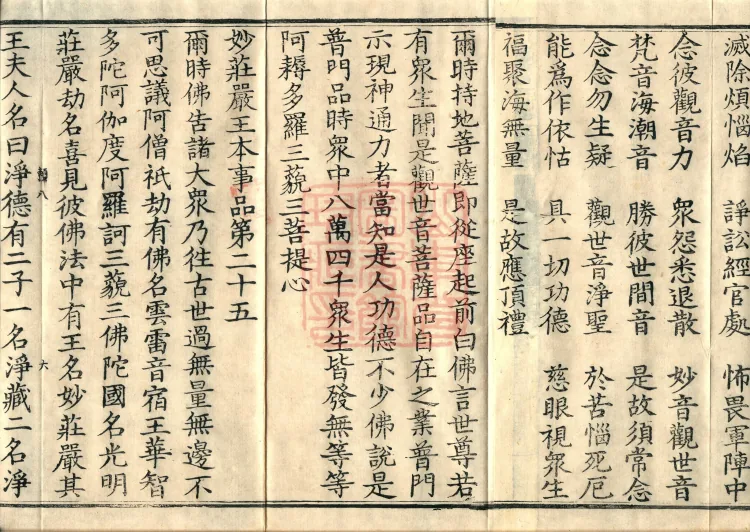 滅除煩惱焰 諍訟經官處 怖畏軍陣中
念彼觀音力 衆怨悉退散 妙音觀世音
梵音海潮音 勝彼世間音 是故須常念
念念勿生疑 觀世音淨聖 於苦惱死厄
能爲作依怙 具一切功德 慈眼視衆生
福聚海無量 是故應頂禮
爾時持地菩薩即從座起前白佛言世尊若
有衆生聞是觀世音菩薩品自在之業普門
示現神通力者當知是人功德不少佛說是
普門品時衆中八萬四千衆生皆發無等等
阿耨多羅三藐三菩提心
妙莊嚴王本事品第二十五
爾時佛告諸大衆乃往古世過無量無邊不
可思議阿僧祇劫有佛名雲雷音宿王華智
多陀阿伽度阿羅訶三藐三佛陀國名光明
莊嚴劫名喜見彼佛法中有王名妙莊嚴其
八 六
王夫人名曰淨德有二子一名淨藏二名淨